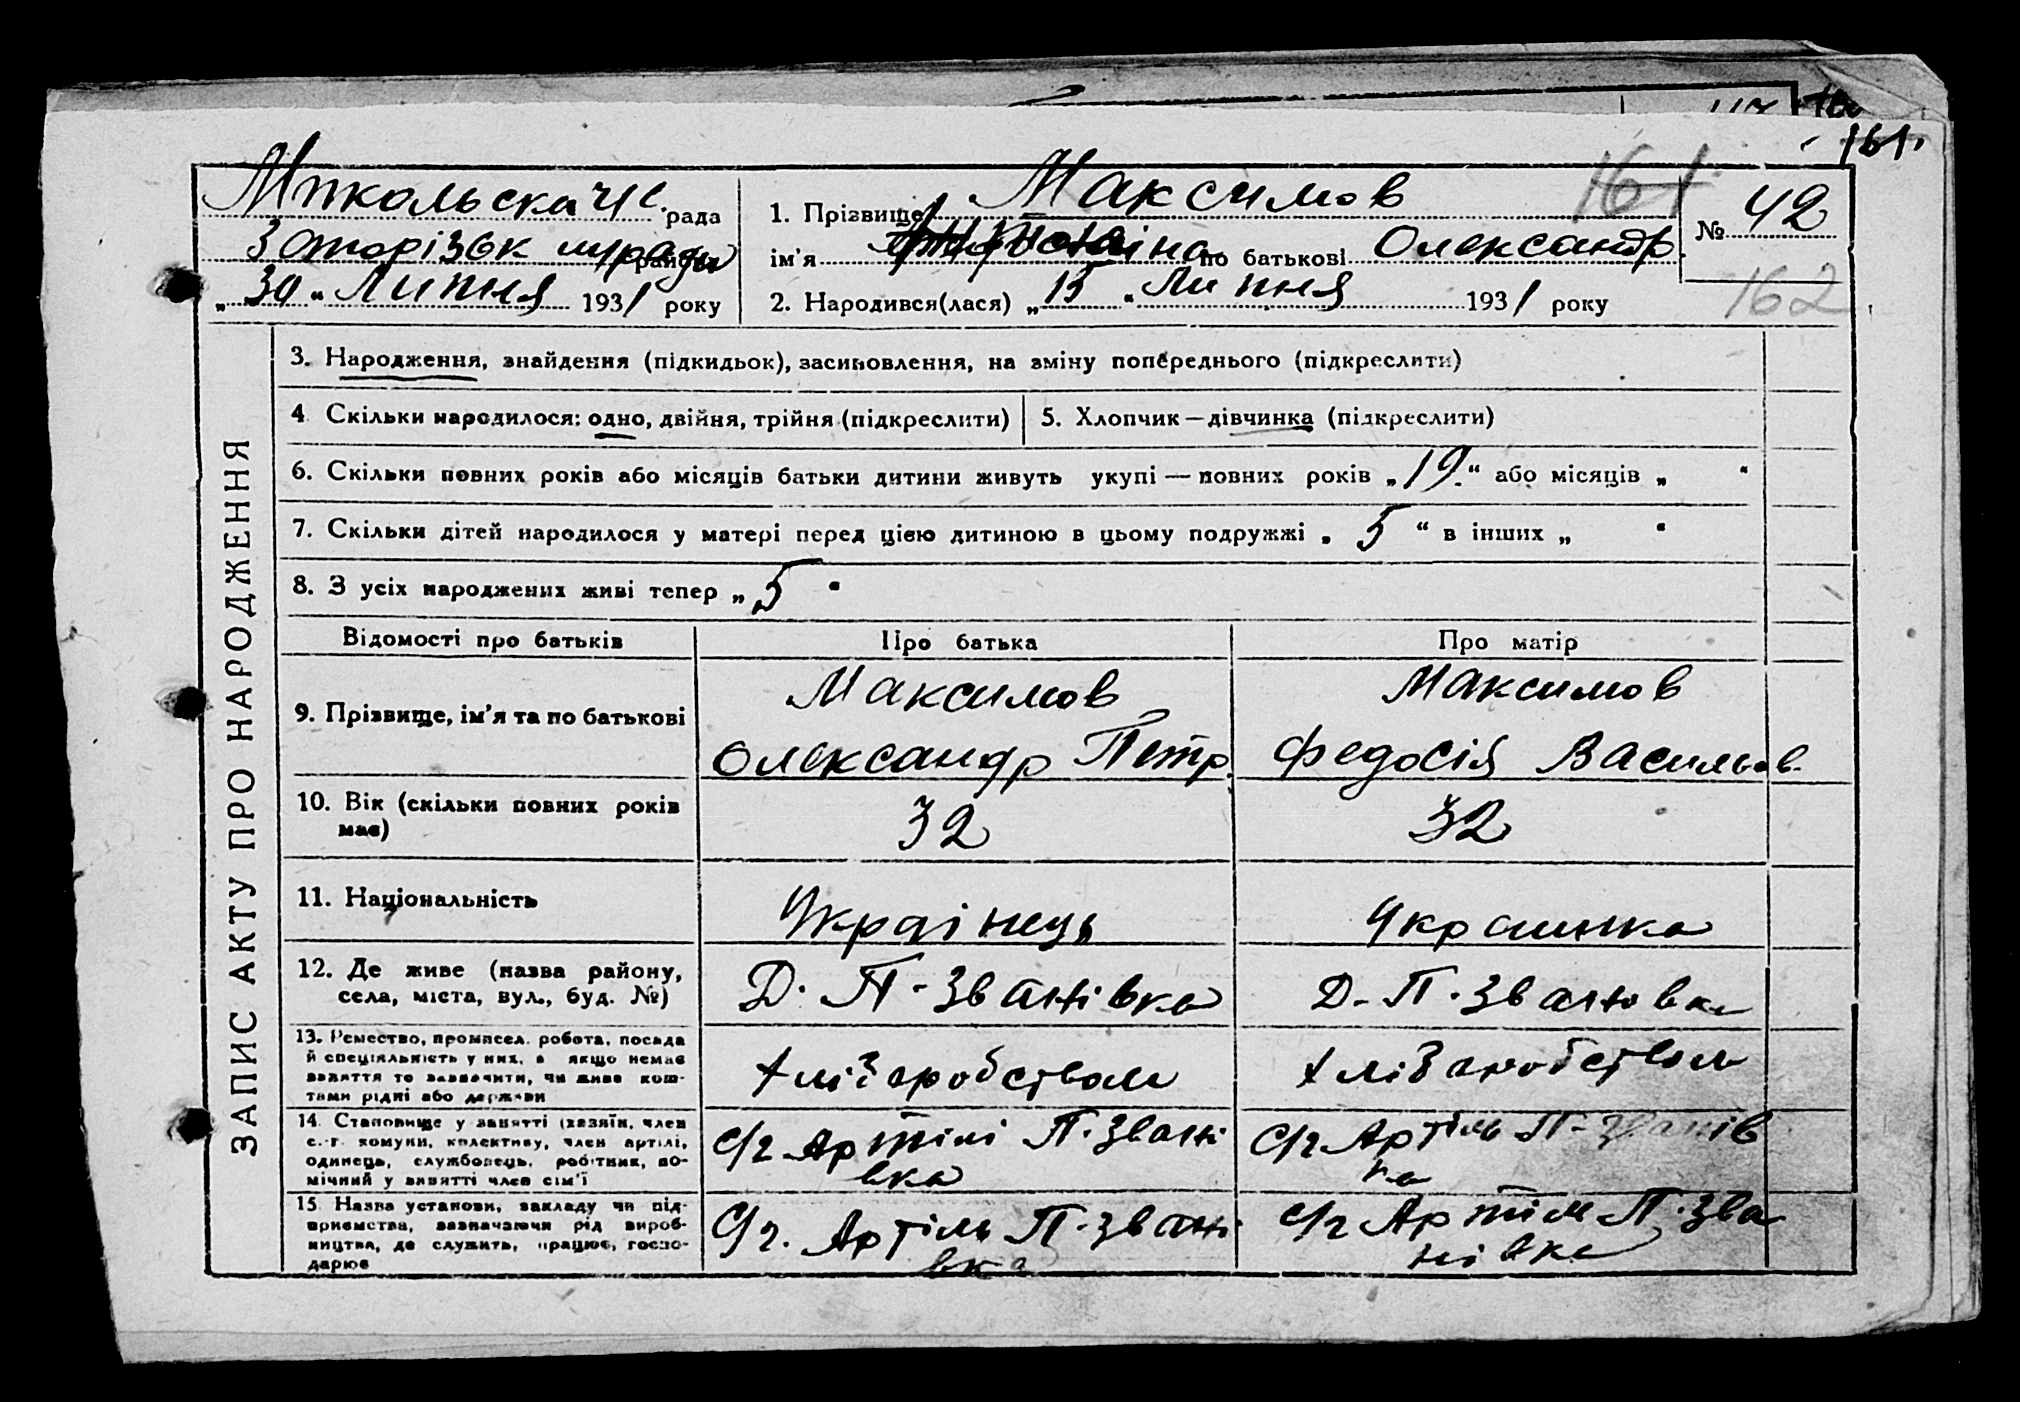 161
Микольска Ч/с. рада
Запорізьк міради району
„30“ Липня 1931 року
1. Прізвище Максимов
ім'я по батькові Олександр.
№ 42
161
2. Народився(лася) „15“ Липня 1931 року
162
ЗАПИС АКТУ ПРО НАРОДЖЕННЯ
3. Народження, знайдення (підкидьок), засиновлення, на зміну попереднього (підкреслити)
4 Скільки народилося: одно, двійня, трійня (підкреслити)
5. Хлопчик — дівчинка (підкреслити)
6. Скільки повних років або місяців батьки дитини живуть укупі — повних років „19.“ або місяців „ “
7. Скільки дітей народилося у матері перед цією дитиною в цьому подружжі „5“ в інших „ “
8. З усіх народжених живі тепер „5“
Відомості про батьків
Про батька
Про матір
9. Прізвище, ім'я та по батькові
Максимов
Олександр Петр.
Максимов
Федосія Васильов.
10. Вік (скільки повних років
має)
32
32
11. Національність
Украінець
Украинка
12. Де живе (назва району,
села, міста, вул., буд. №)
Д. П-Званівка
Д-П.Звановка
13. Ремество, промисел, робота, посада
й спеціяльність у них, а якщо немає
заняття то зазначити, чи живе кош-
тами рідні або держави
хліборобством
хліборобством
14. Становище у занятті (хазяїн, член
с.-г. комуни, колективу, член артілі,
одинець, службовець, робітник, по-
мічний у занятті член сім'ї
С/г Артілі П.Звані
вка
С/г Артіль П-Званів
ка
15. Назва установи, закладу чи під-
приємства, зазначаючи рід вироб-
ництва, де служить, працює, госпо-
дарює
С/г. Артіль П.Звані
вка
С/г Артіль П.Зва
нівка